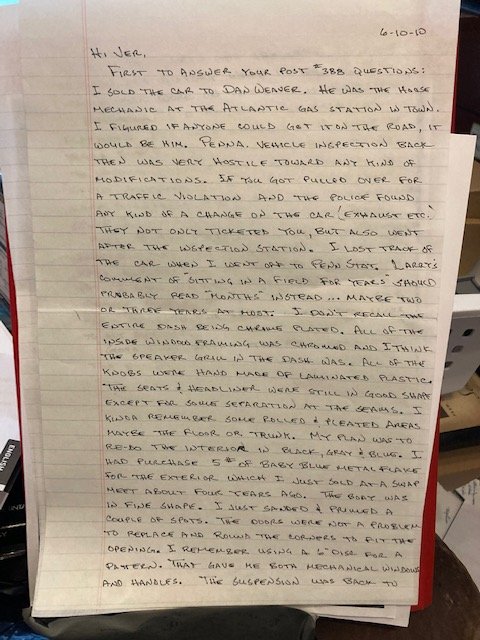 6-10-10
Hi Jer,
First to answer your post #388 questions:
I sold the car to Dan Weaver. He was the Horse
mechanic at the Atlantic gas station in town.
I figured if anyone could get it on the road, it
would be him. Penna. vehicle inspection back
then was very hostile toward any kind of
modifications. If you got pulled over for
a traffic violation and the police found
any kind of a change on the car (exhaust etc.)
they not only ticketed you, but also went
after the inspection station. I lost track of
the car when I went off to Penn State. Larry's
comment of "sitting in a field for years" should
probably read "months" instead... maybe two
or three years at most. I don't recall the
entire dash being chrome plated. All of the
inside window framing was chromed and I think
the speaker grill in the dash was. All of the
knobs were hand made of laminated plastic.
The seats & headliner were still in good shape
except for some separation at the seams. I
kinda remember some rolled & pleated areas
maybe the floor or trunk. My plan was to
re-do the interior in black, gray & blue. I
had purchase 5# of baby blue metalflake
for the exterior which I just sold at a swap
meet about four years ago. The body was
in fine shape. I just sanded & primed a
couple of spots. The doors were not a problem
to replace and round the corners to fit the
opening. I remember using a 6" disc for a
pattern. That gave me both mechanical windows
and handles. The suspension was back to
ENGLISH